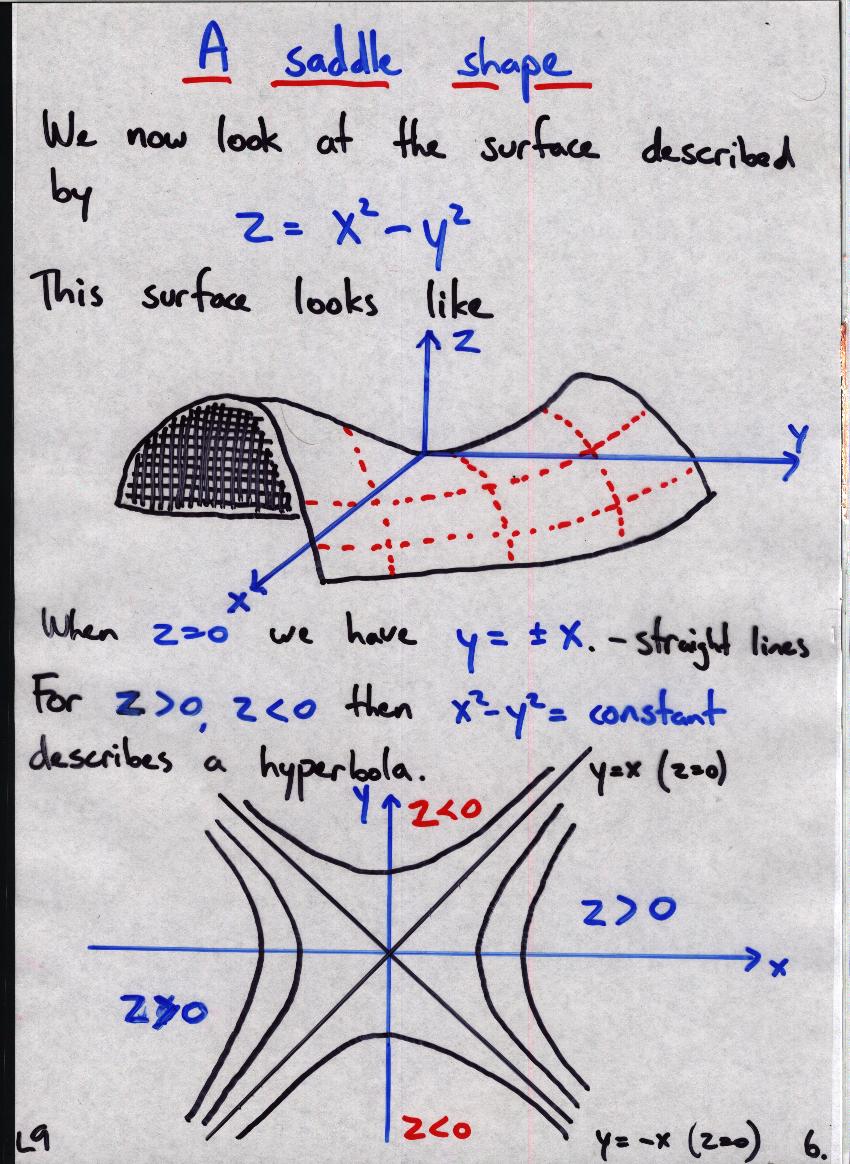 A saddle shape
We now look at the surface described
by
z = x² - y²
This surface looks like
z
y
x
When z=0 we have y = ± x. - straight lines
For z>0, z<0 then x²-y² = constant
describes a hyperbola.
y=x (z=0)
y
z<0
z>0
x
z>0
z<0
L9
y=-x (z=0)
6.